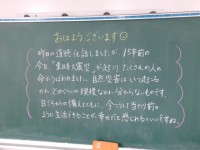 おはようございます
昨日の道徳でも話しましたが、15年前の
今日「東日本大震災」が起こり、たくさんの人の
命がうばわれました。自然災害はいつ起こる
のか、どのくらいの規模なのか分からないものです。
日ごろからの備えとともに、今こうして当たり前の
ように生活できることが、幸せだと感じれるといいですね。